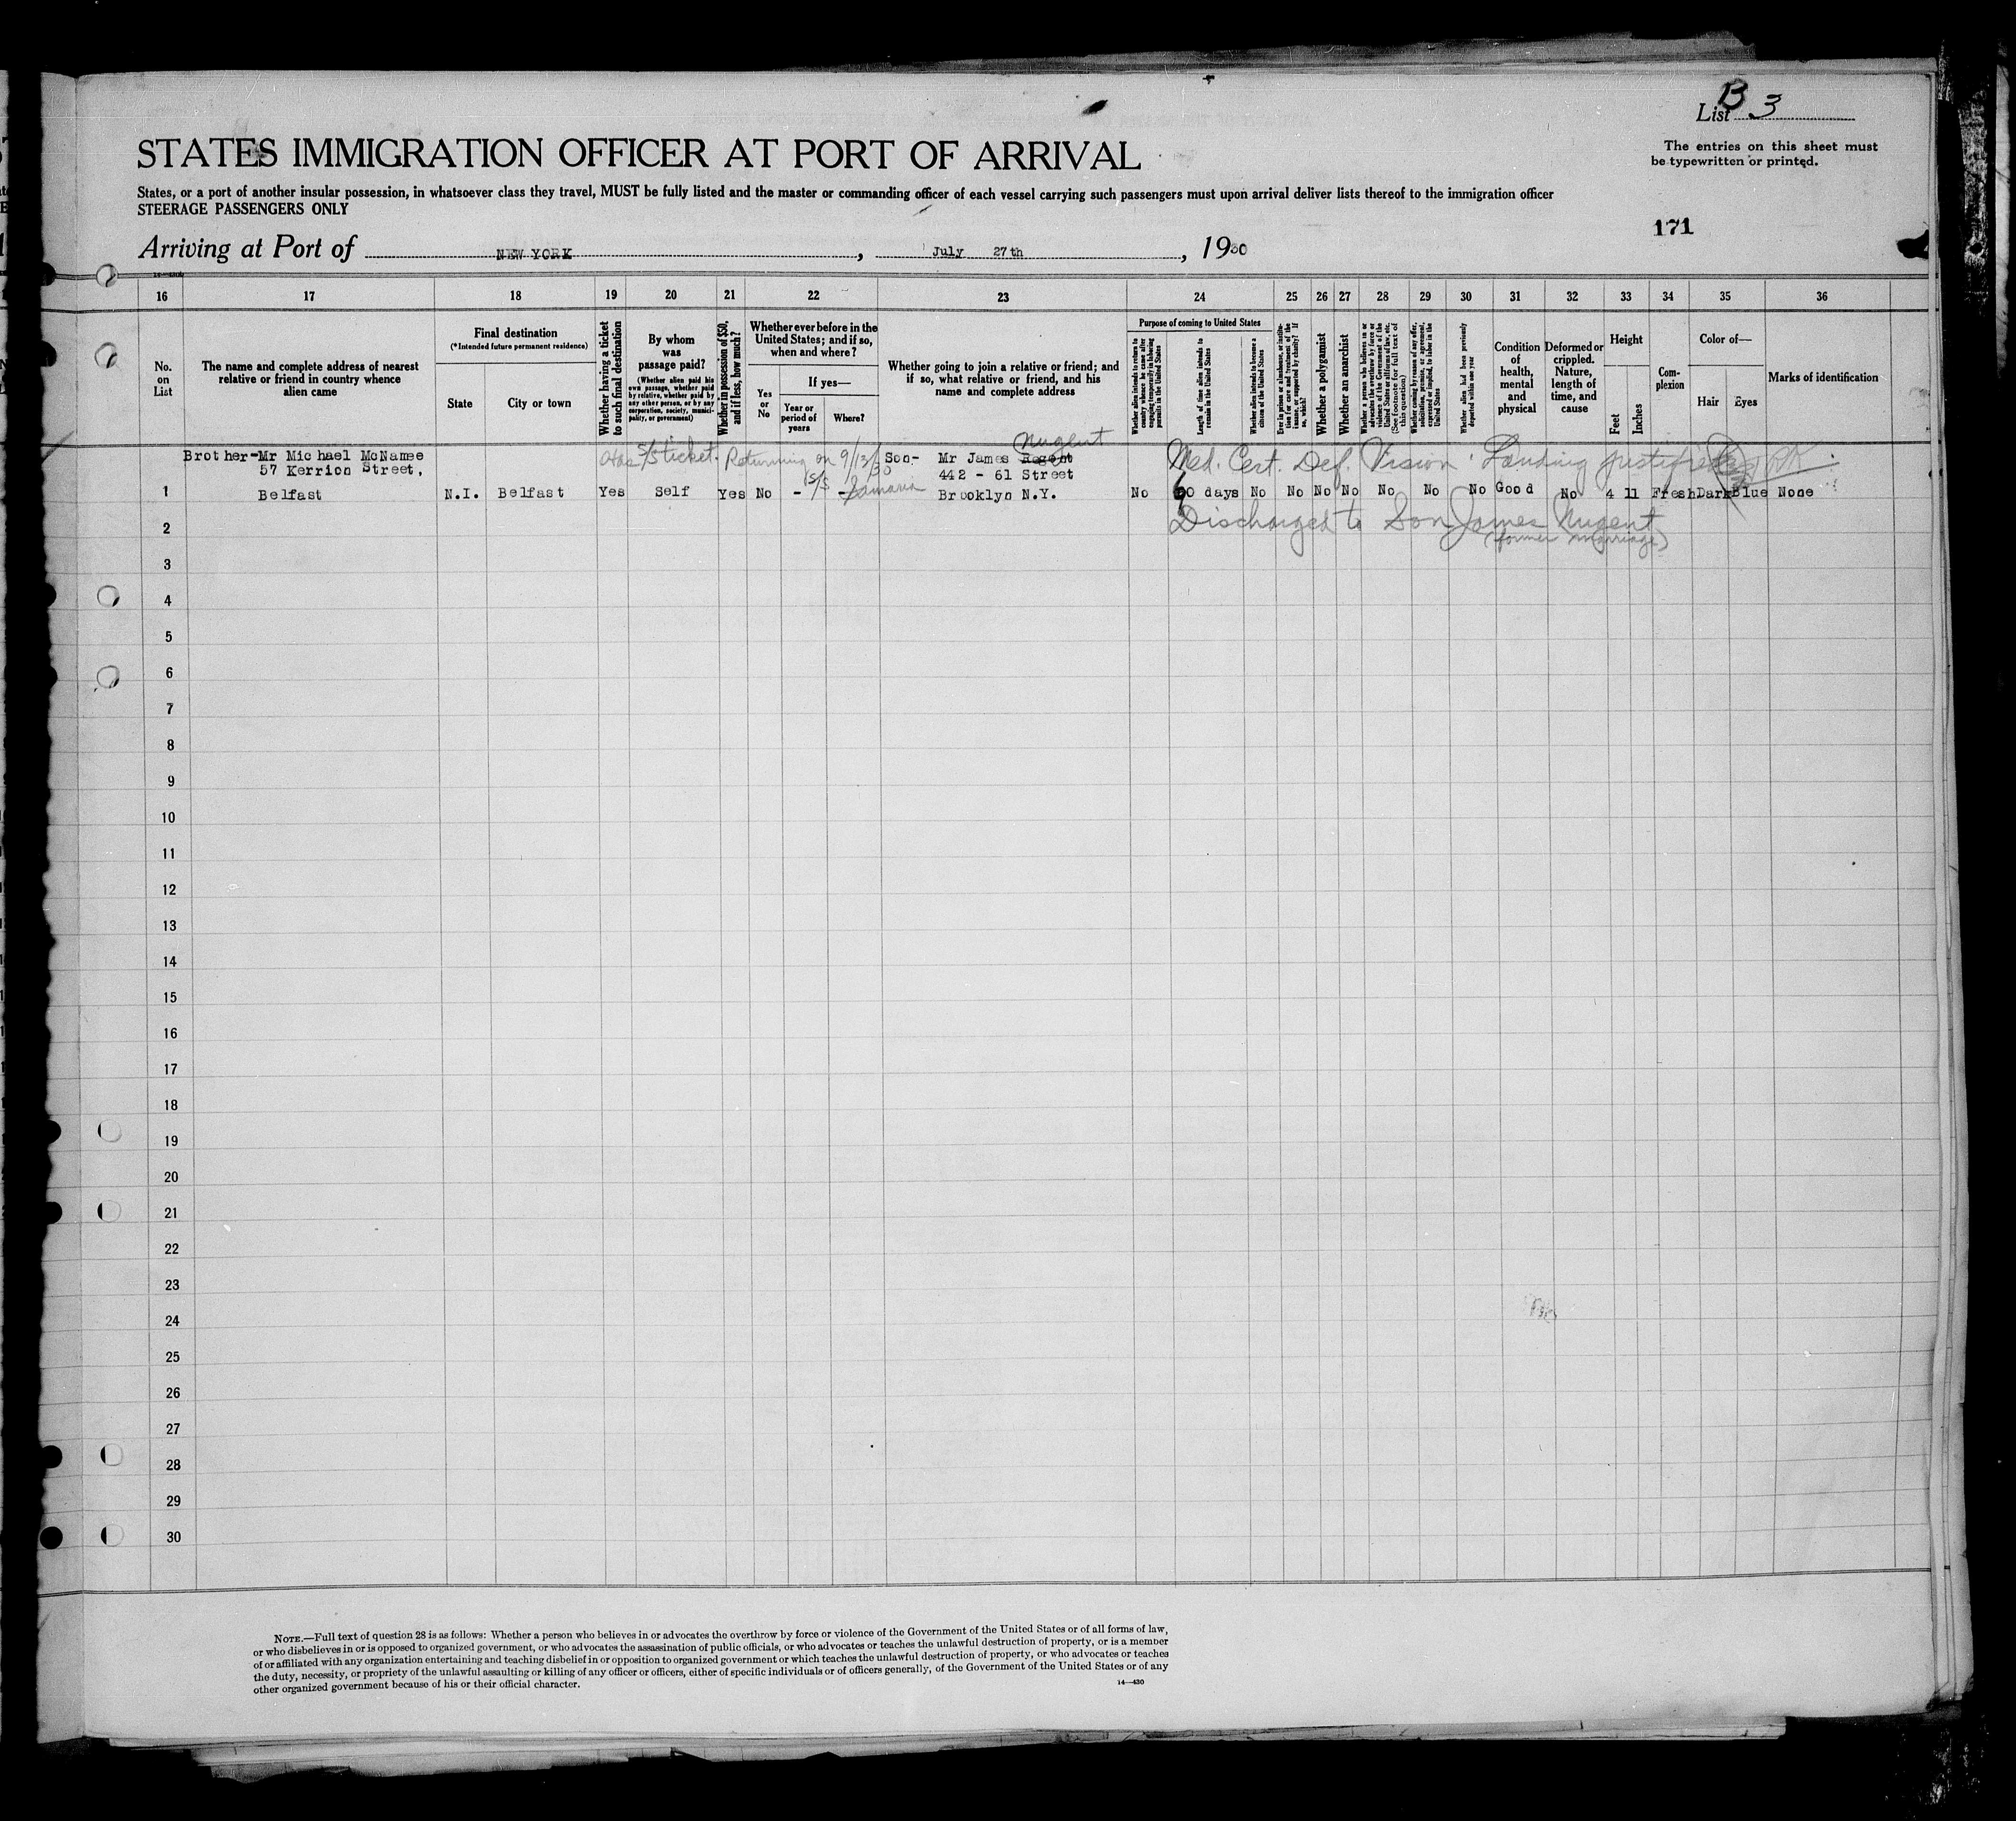 List B 3
STATES IMMIGRATION OFFICER AT PORT OF ARRIVAL
The entries on this sheet must
be typewritten or printed.
States, or a port of another insular possession, in whatsoever class they travel, MUST be fully listed and the master or commanding officer of each vessel carrying such passengers must upon arrival deliver lists thereof to the immigration officer
STEERAGE PASSENGERS ONLY
171
Arriving at Port of NEW YORK, July 27th, 1930
16 17 18 19 20 21 22 23 24 25 26 27 28 29 30 31 32 33 34 35 36
No. on List
The name and complete address of nearest
relative or friend in country whence
alien came
Final destination
(*Intended future permanent residence)
State
City or town
Whether having a ticket
to such final destination
By whom
was
passage paid?
(Whether alien paid his
own passage, whether paid
by relative, whether paid by
any other person, or by any
corporation, society, munici-
pality, or government)
Whether in possession of $50,
and if less, how much?
Whether ever before in the
United States; and if so,
when and where?
Yes
or
No
If yes—
Year or
period of
years
Where?
Whether going to join a relative or friend; and
if so, what relative or friend, and his
name and complete address
Purpose of coming to United States
Whether alien intends to return to
country whence he came after
engaging temporarily in laboring
pursuits in the United States
Length of time alien intends to
remain in the United States
Whether alien intends to become a
citizen of the United States
Ever in prison or almshouse, or institu-
tion for care and treatment of the
insane, or supported by charity? If
so, which?
Whether a polygamist
Whether an anarchist
Whether a person who believes in or
advocates the overthrow by force or
violence of the Government of the
United States or all forms of law, etc.
(See footnote for full text of
this question)
Whether coming by reason of any offer,
solicitation, promise, or agreement,
expressed or implied, to labor in the
United States
Whether alien had been previously
deported within one year
Condition
of
health,
mental
and
physical
Deformed or
crippled.
Nature,
length of
time, and
cause
Height
Feet
Inches
Com-
plexion
Color of—
Hair
Eyes
Marks of identification
Nugent
Has S/S ticket. Returning on 9/13/30
S/S Samaria
Med. Cert. Def. Vision. Landing justified
Brother-Mr Michael McNamee
57 Kerrion Street,
Belfast
Son- Mr James Regent
442 - 61 Street
Brooklyn N.Y.
1 N.I. Belfast Yes Self Yes No - - No 60 days No No No No No No No Good No 4 11 Fresh Dark Blue None
Discharged to Son James Nugent
(former marriage)
2
3
4
5
6
7
8
9
10
11
12
13
14
15
16
17
18
19
20
21
22
23
24
25
26
27
28
29
30
NOTE.—Full text of question 28 is as follows: Whether a person who believes in or advocates the overthrow by force or violence of the Government of the United States or of all forms of law,
or who disbelieves in or is opposed to organized government, or who advocates the assassination of public officials, or who advocates or teaches the unlawful destruction of property, or is a member
of or affiliated with any organization entertaining and teaching disbelief in or opposition to organized government or which teaches the unlawful destruction of property, or who advocates or teaches
the duty, necessity, or propriety of the unlawful assaulting or killing of any officer or officers, either of specific individuals or of officers generally, of the Government of the United States or of any
other organized government because of his or their official character.
14—430